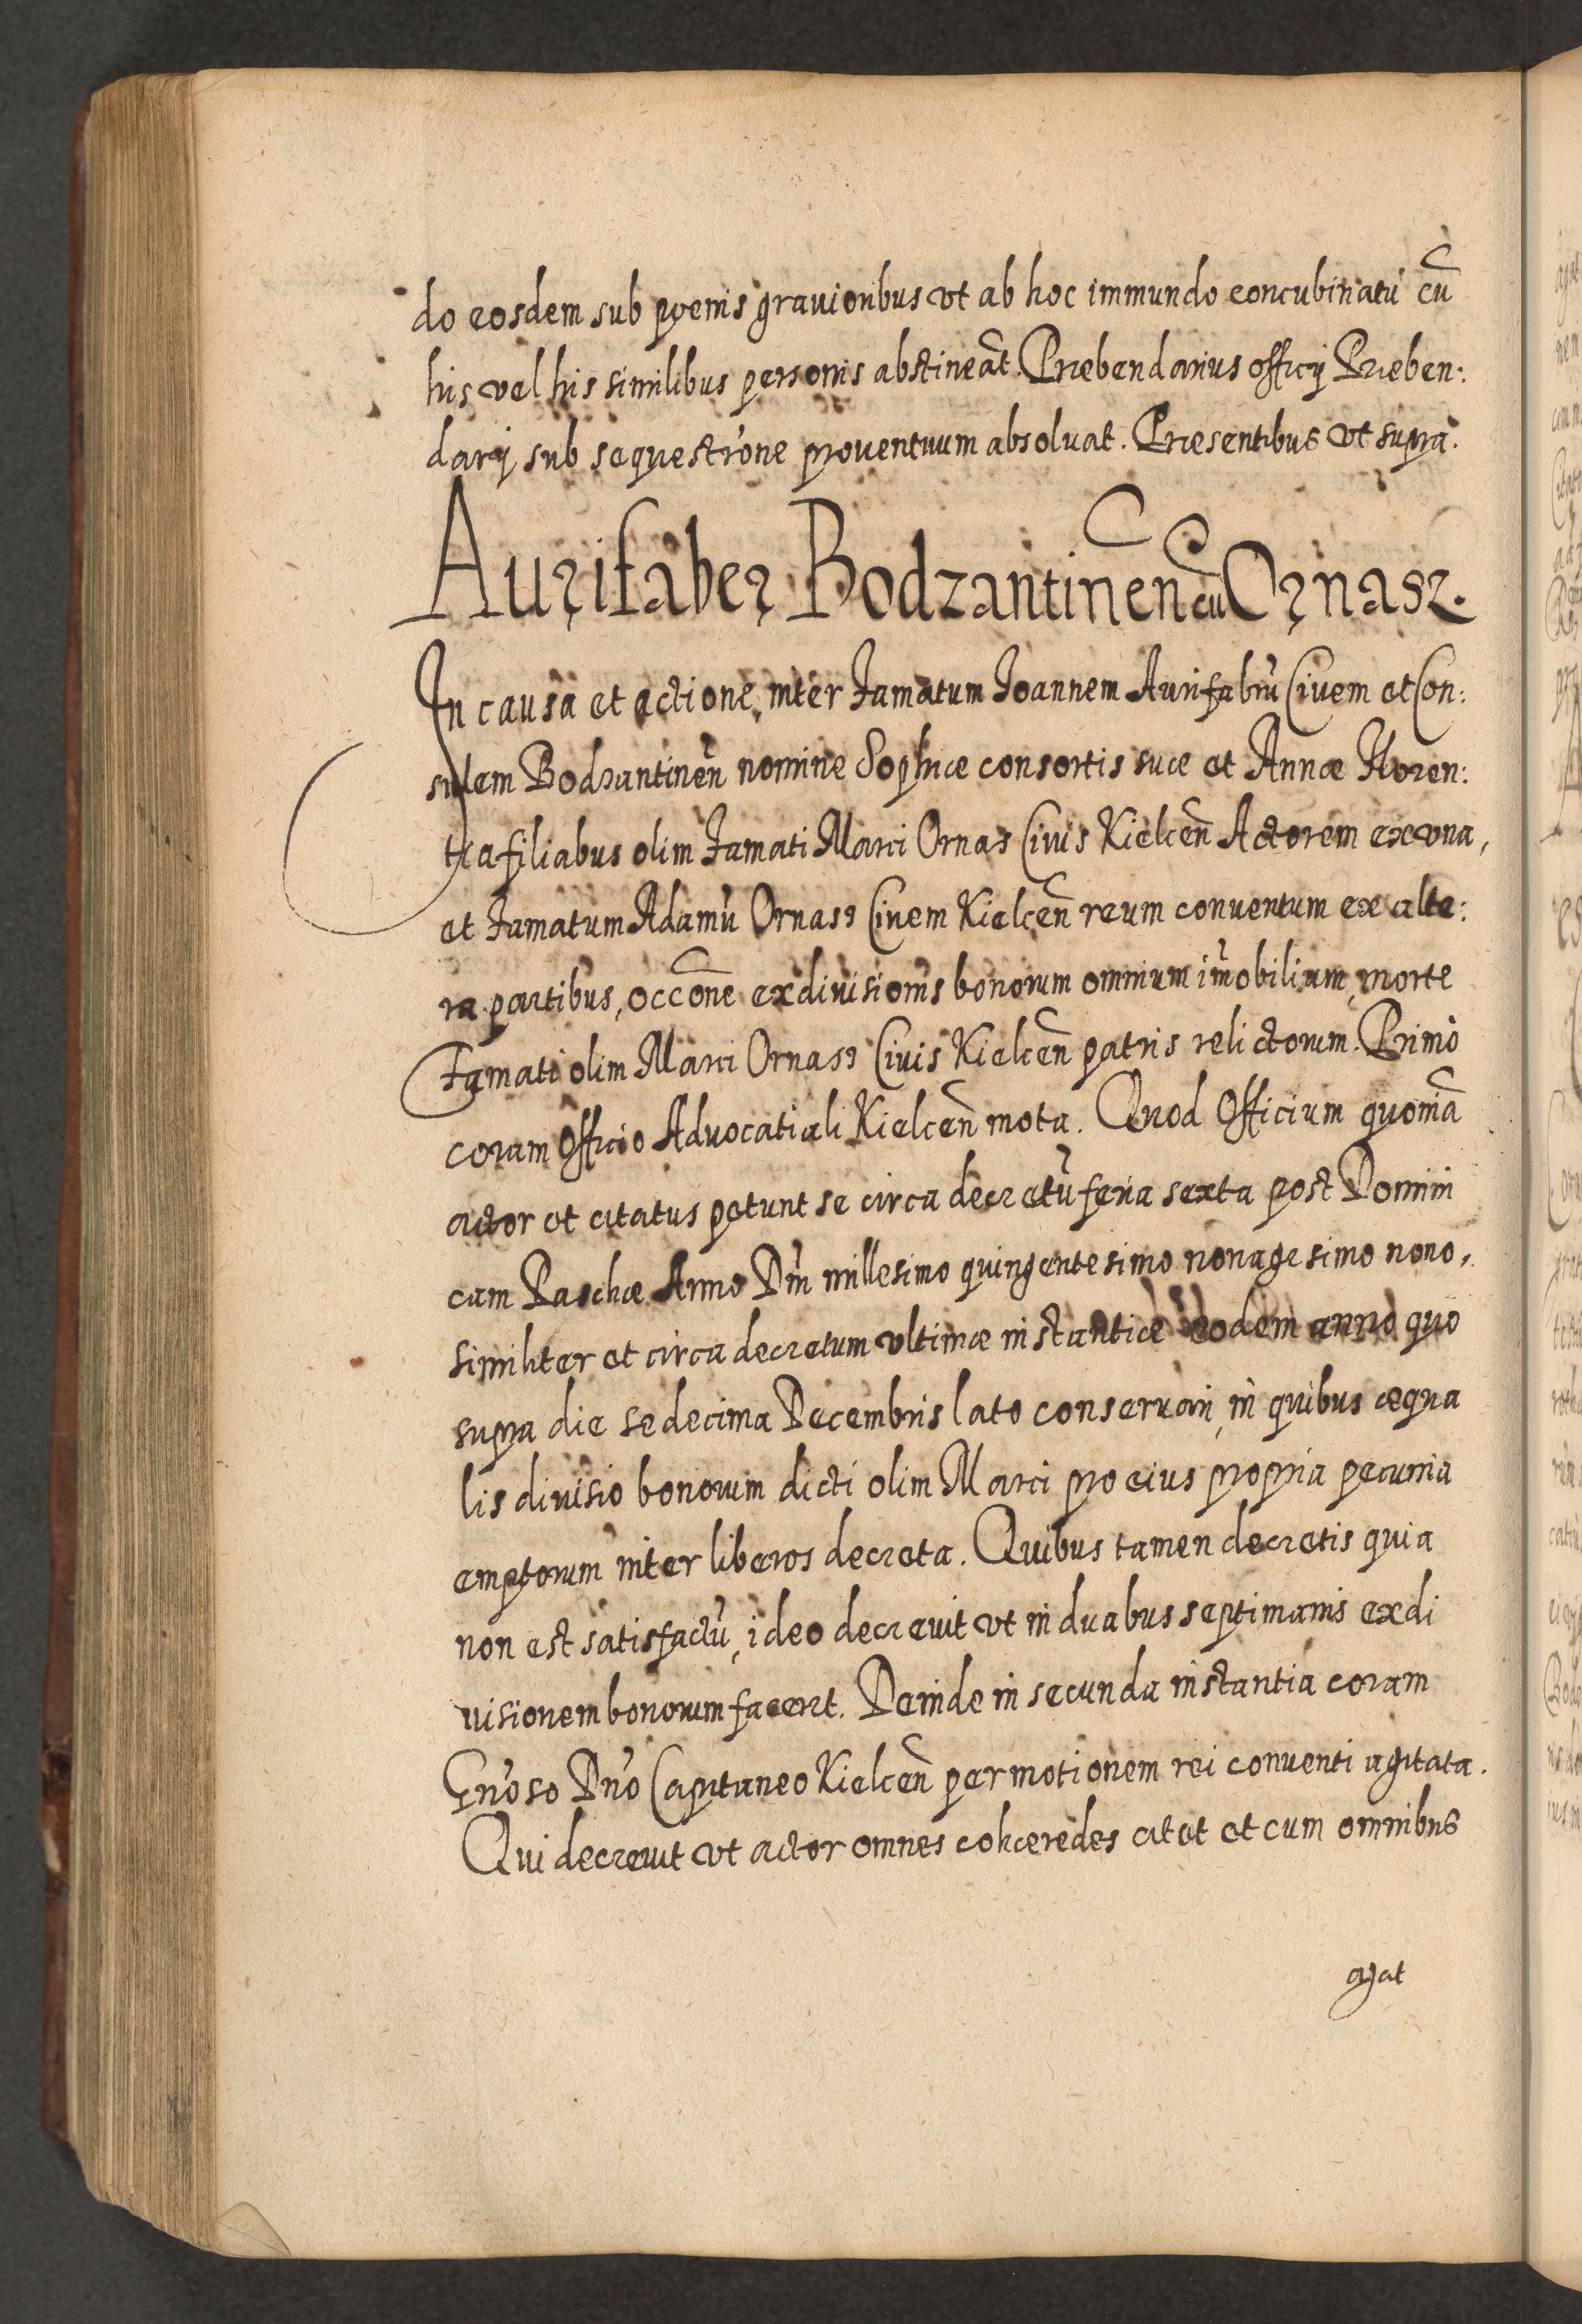 do eosdem sub poenis grauioribus vt ab hoc immundo concubinatu cū
his vel his similibus personis abstineāt. Præbendarius officij Præben:
darij sub sequestrōne prouentuum absoluat. Præsentibus vt supra.
Aurifaber Bodzantinen̄ cū Ornasz.
In causa et actione inter Famatum Joannem Aurifabrū Civem et Con:
sulem Bodzantinen̄ nomine Sophiæ consortis suæ et Annæ Floren:
tia filiabus olim Famati Marci Ornas Civis Kielcen̄ Actorem ex vna,
et Famatum Adamū Ornasz Civem Kielcen̄ reum conuentum ex alte:
ra partibus, occōne exdiuisionis bonorum omnium im̄obilium, morte
Famati olim Marci Ornasz Ciuis Kielcen̄ patris relictorum. Primò
coram Officio Aduocatiali Kielcen̄ mota. Quod Officium quoniā
actor et citatus petunt se circa decretū feria sexta post Domini
cam Paschæ Anno Dn̄i millesimo quingentesimo nonagesimo nono,
similiter et circa decretum vltimæ instantiæ eodem anno quo
supra die sedecima Decembris lato conseruari, in quibus æqua
lis diuisio bonorum dicti olim Marci pro eius propria pecunia
emptorum inter liberos decreta. Quibus tamen decretis quia
non est satisfactū, ideo decreuit vt in duabus septimanis exdi
uisionem bonorum facerēt. Deinde in secunda instantia coram
Gn̄oso Dn̄o Capitaneo Kielcen̄ per motionem rei conuenti agitata.
Qui decreuit vt actor omnes cohæredes citet et cum omnibus
agat